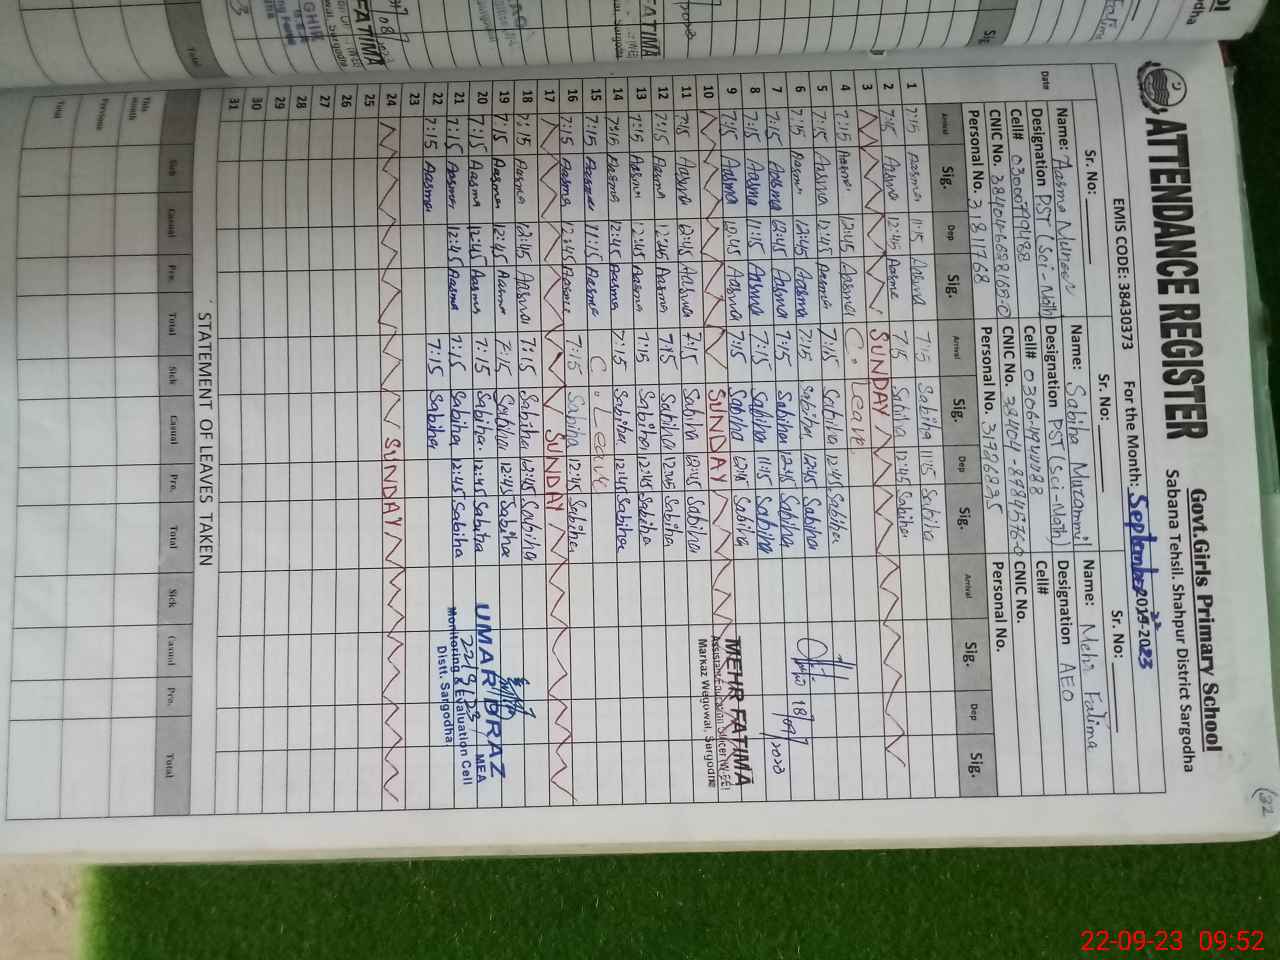 ATTENDANCE REGISTER
Govt.Girls Primary School
Sabana Tehsil. Shahpur District Sargodha
EMIS CODE: 38430373 For the Month: September 2023
Sr. No: Sr. No: Sr. No:
Name: Aasma Muneer Name: Sabiha Muzammil Name: Mehr Fatima
Designation PST (Sci-Math) Designation PST (Sci-Math) Designation AEO
Cell# Cell# Cell#
CNIC No. CNIC No. CNIC No.
Personal No. 31811768 Personal No. 31726835 Personal No.
Date Arrival Sig. Dep Sig. Arrival Sig. Dep Sig. Arrival Sig. Dep Sig.
1 7:15 Aasma 11:15 Aasma 7:15 Sabiha 11:15 Sabiha
2 7:15 Aasma 12:45 Aasma 7:15 Sabiha 12:45 Sabiha
3 SUNDAY
4 7:15 Aasma 12:45 Aasma C. Leave
5 7:15 Aasma 12:45 Aasma 7:15 Sabiha 12:45 Sabiha
6 7:15 Aasma 12:45 Aasma 7:15 Sabiha 12:45 Sabiha
7 7:15 Aasma 12:45 Aasma 7:15 Sabiha 12:45 Sabiha 18/09/2023
8 7:15 Aasma 11:15 Aasma 7:15 Sabiha 11:15 Sabiha
9 7:15 Aasma 12:45 Aasma 7:15 Sabiha 12:45 Sabiha
MEHR FATIMA
Assistant Education Officer (W-EE)
Markaz Wegowal, Sargodha
10 SUNDAY
11 7:15 Aasma 12:45 Aasma 7:15 Sabiha 12:45 Sabiha
12 7:15 Aasma 12:45 Aasma 7:15 Sabiha 12:45 Sabiha
13 7:15 Aasma 12:45 Aasma 7:15 Sabiha 12:45 Sabiha
14 7:15 Aasma 12:45 Aasma 7:15 Sabiha 12:45 Sabiha
15 7:15 Aasma 11:15 Aasma C. Leave
16 7:15 Aasma 12:45 Aasma 7:15 Sabiha 12:45 Sabiha
17 SUNDAY
18 7:15 Aasma 12:45 Aasma 7:15 Sabiha 12:45 Sabiha
19 7:15 Aasma 12:45 Aasma 7:15 Sabiha 12:45 Sabiha
20 7:15 Aasma 12:45 Aasma 7:15 Sabiha 12:45 Sabiha
21 7:15 Aasma 12:45 Aasma 7:15 Sabiha 12:45 Sabiha
22 7:15 Aasma 7:15 Sabiha
UMAR DRAZ
MEA
22/9/23
Monitoring & Evaluation Cell
Distt. Sargodha
23
24 SUNDAY
25
26
27
28
29
30
31
STATEMENT OF LEAVES TAKEN
Sick Casual Pre. Total Sick Casual Pre. Total
This month
Previous
Total
32
22-09-23 09:52